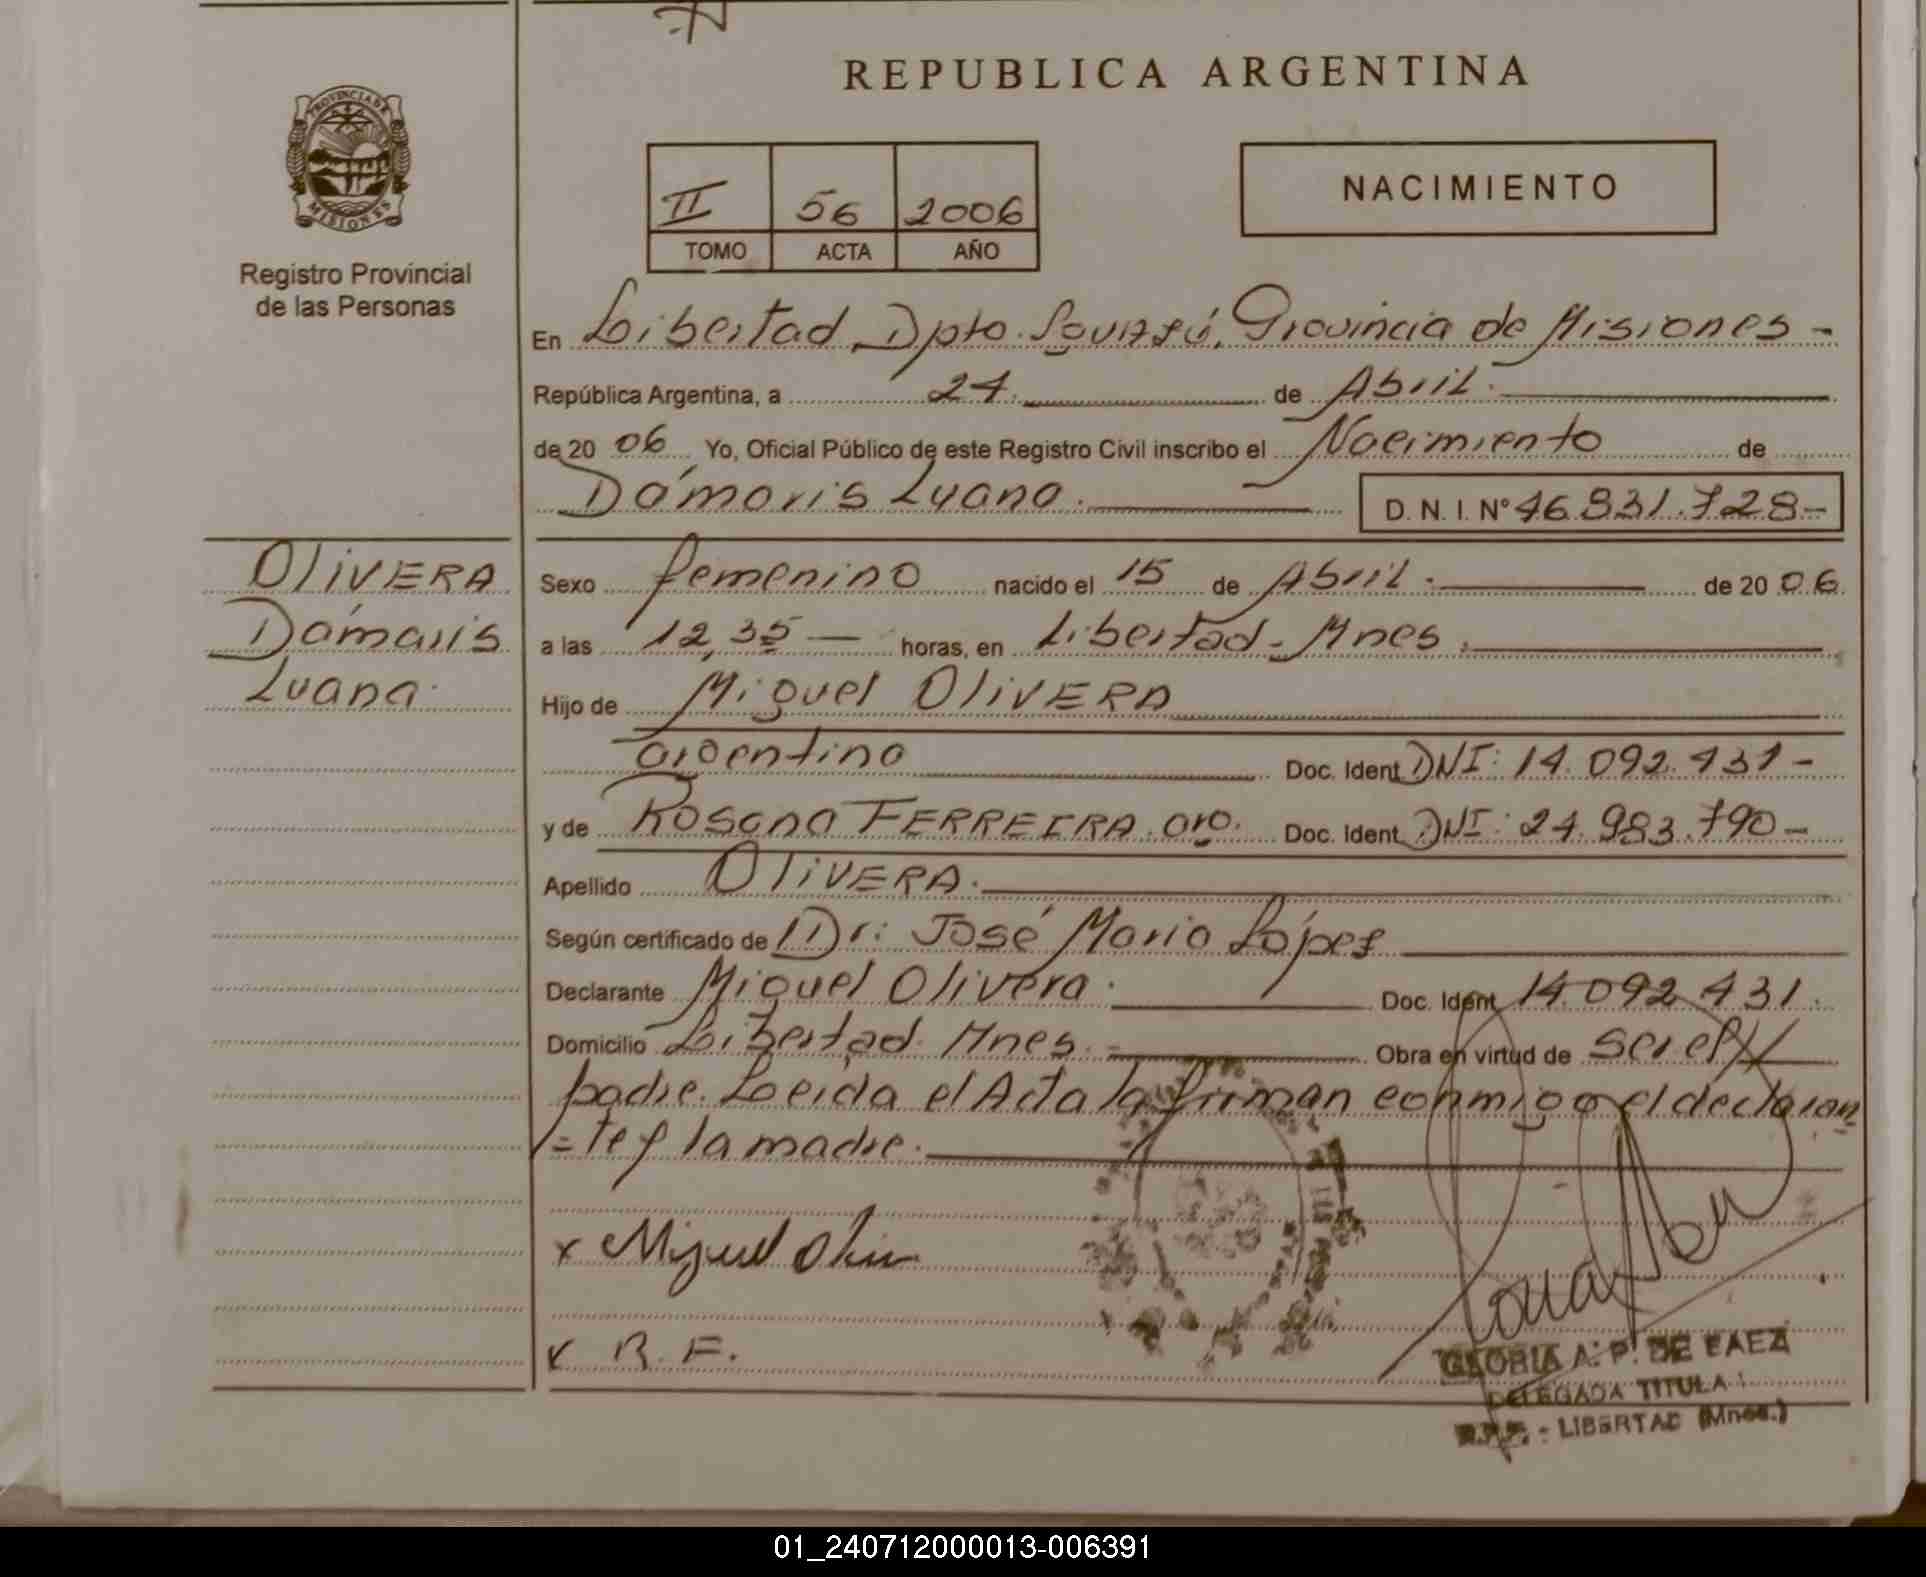 REPUBLICA ARGENTINA
PROVINCIA DE
MISIONES
Registro Provincial
de las Personas
II 56 2006
TOMO ACTA AÑO
NACIMIENTO
En Libertad, Dpto. Iguazú, Provincia de Misiones -
República Argentina, a 24. de Abril.
de 20 06 Yo, Oficial Público de este Registro Civil inscribo el Nacimiento de
Dámaris Luana. D. N. I. Nº 46.831.728-
OLIVERA
Dámaris
Luana.
Sexo femenino nacido el 15 de Abril. de 20 06.
a las 12,35 - horas, en Libertad - Mnes.
Hijo de Miguel OLIVERA
argentino Doc. Ident DNI: 14.092.431-
y de Rosana FERREIRA. arg. Doc. Ident DNI: 24.983.790-
Apellido OLIVERA.
Según certificado de Dr: José Mario López
Declarante Miguel Olivera. Doc. Ident 14.092.431.
Domicilio Libertad. Mnes. - Obra en virtud de ser el
padre. Leida el Acta la firman conmigo el declaran
=te y la madre.
x Miguel Oliv
x R. F.
GLORIA A. P. DE BAEZ
DELEGADA TITULA
R.P.P. - LIBERTAD (Mnes.)
01_240712000013-006391